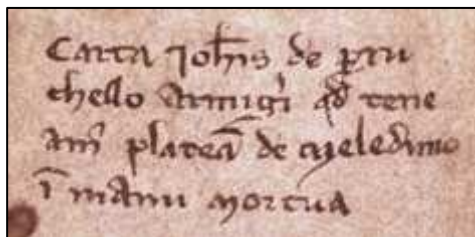 Carta Joh̅is de p̱ru
chello armigi̓ qd̓ tene
am̓ plateā de
ī manu mortua